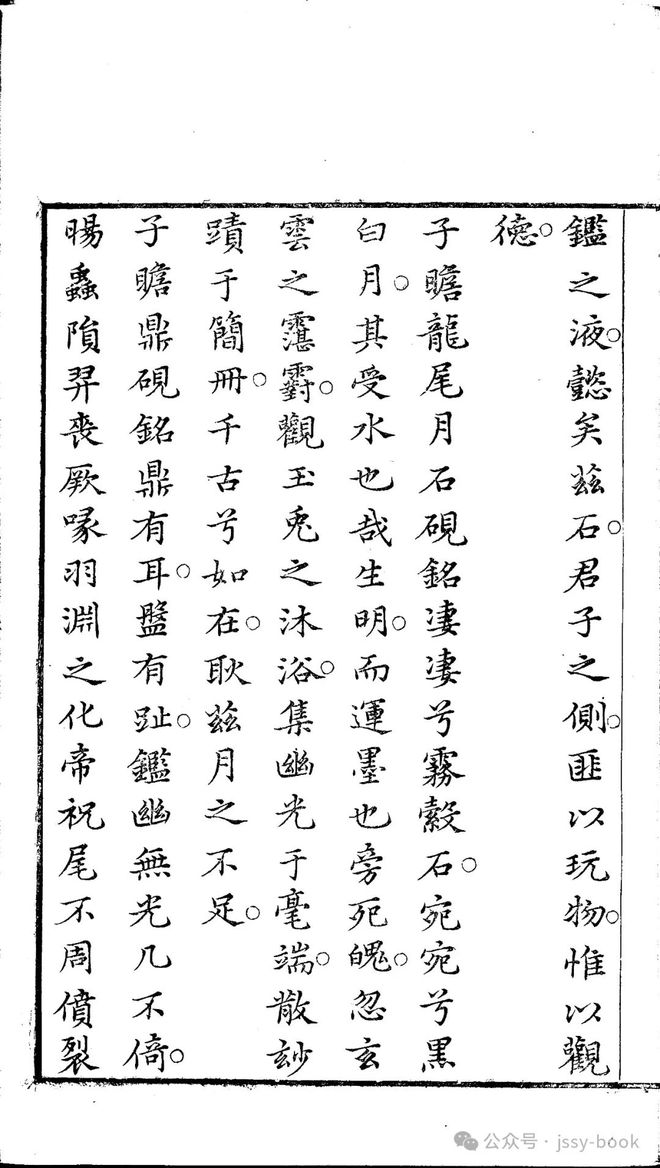 鑑之液○懿矣茲石○君子之側○匪以玩物○惟以觀
德○
子瞻龍尾月石硯銘凄凄兮霧縠石○宛宛兮黑
白月○其受水也哉生明○而運墨也旁死魄○忽玄
雲之霮䨴○觀玉兎之沐浴○集幽光于毫端○散玅
蹟于簡冊○千古兮如在○耿茲月之不足○
子瞻鼎硯銘鼎有耳○盤有趾○鑑幽無光几不倚○
暘蟲隕羿喪厥喙羽淵之化帝祝尾不周僨裂
公众号·jssy-book